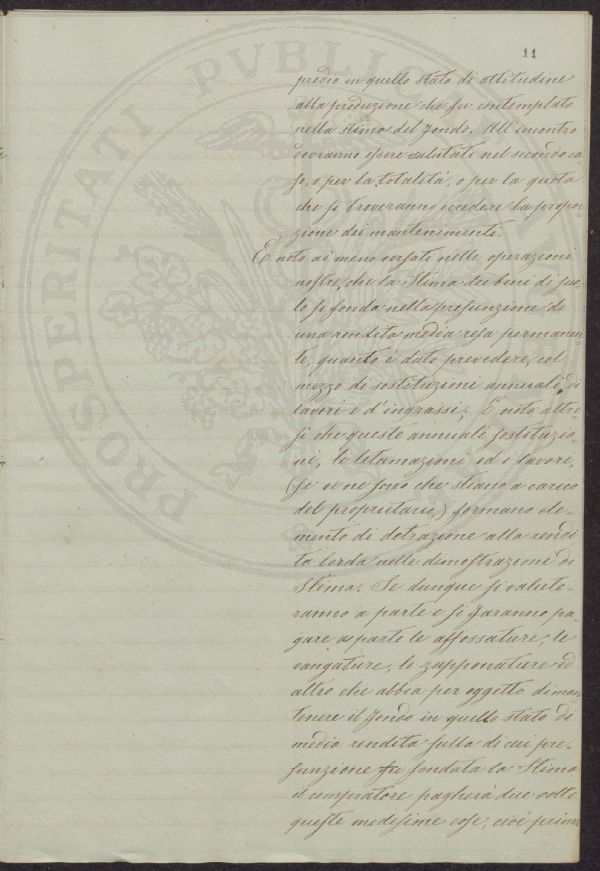 11
PROSPERITATI PVBLICAE
predio in quello stato di attitudine
alla produzione che fu contemplato
nella stima del fondo. All'incontro
dovranno essere valutati nel secondo ca-
so, o per la totalità, o per la quota
che si troveranno eccedere la propor-
zione dei mantenimenti.
È noto ai meno versati nelle operazioni
nostre, che la Stima dei beni di suo-
lo si fonda nella presunzione di
una rendita media resa permanen-
te, quanto è dato prevedere, col
mezzo di sostituzioni annuali, di
lavori e d'ingrassi; È noto altre-
sì che queste annuali sostituzio-
ni, le letamazioni ed i lavori,
(se ve ne sono che stiano a carico
del proprietario) formano ele-
mento di detrazione alla rendi
ta lorda nelle dimostrazioni di
Stima. Se dunque si valute-
ranno a parte e si faranno pa-
gare a parte le affossature, le
vangature, le zapponature ed
altro che abbia per oggetto di man
tenere il fondo in quello stato di
media rendita sulla di cui pre-
sunzione fu fondata la Stima,
il compratore pagherà due volte
queste medesime cose, cioè prima